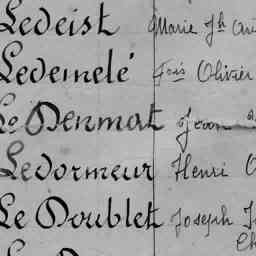 Ledeist Marie Jh
Ledemelé Fois Olivier
Le Denmat Jean
Ledormeur Henri
Le Doublet Joseph